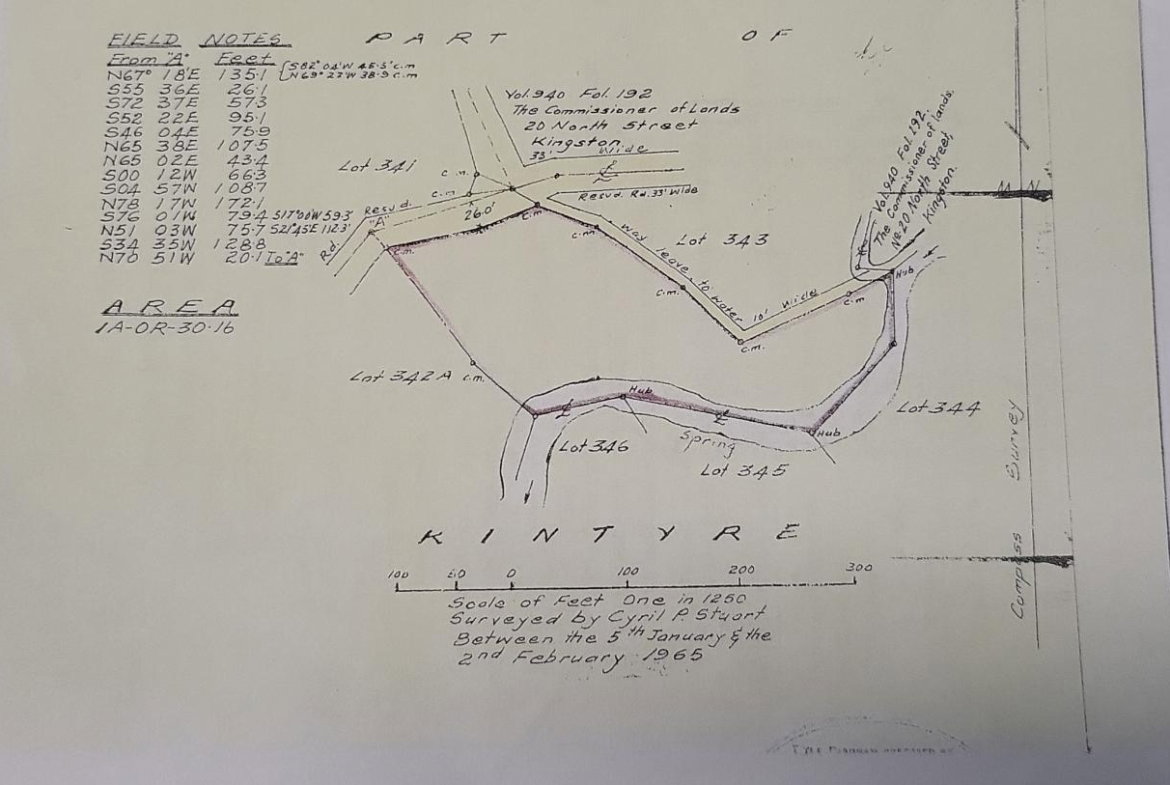 PART OF
FIELD NOTES
From "A" Feet
N67° 18'E 135.1 {S82° 04'W 45.5' c.m
N69° 27'W 38.9 c.m
S55 36E 26.1
S72 37E 57.3
S52 22E 95.1
S46 04E 75.9
N65 38E 107.5
N65 02E 43.4
S00 12W 66.3
S04 57W 108.7
N78 17W 172.1
S76 01W 79.4 S17°00'W 59.3'
N51 03W 75.7 S21°45E 112.3'
S34 35W 128.8
N70 51W 20.1 To "A"
AREA
1A-0R-30.16
Vol.940 Fol.192
The Commissioner of Lands
20 North Street
Kingston.
33' Wide
Lot 341
c.m.
c.m.
Resvd. Rd. 33' Wide
Resvd.
Rd.
"A"
26.0'
c.m.
c.m.
c.m.
Way leave to Water 10' Wide
Lot 343
Vol.940 Fol.192.
The Commissioner of lands,
No 20 North Street,
Kingston.
M N
Hub
c.m.
c.m.
c.m.
Lot 342A c.m.
Hub
Lot 344
Hub
Lot 346
Spring
Lot 345
KINTYRE
100 50 0 100 200 300
Scale of Feet One in 1250
Surveyed by Cyril P. Stuart
Between the 5th January & the
2nd February 1965
Compass Survey